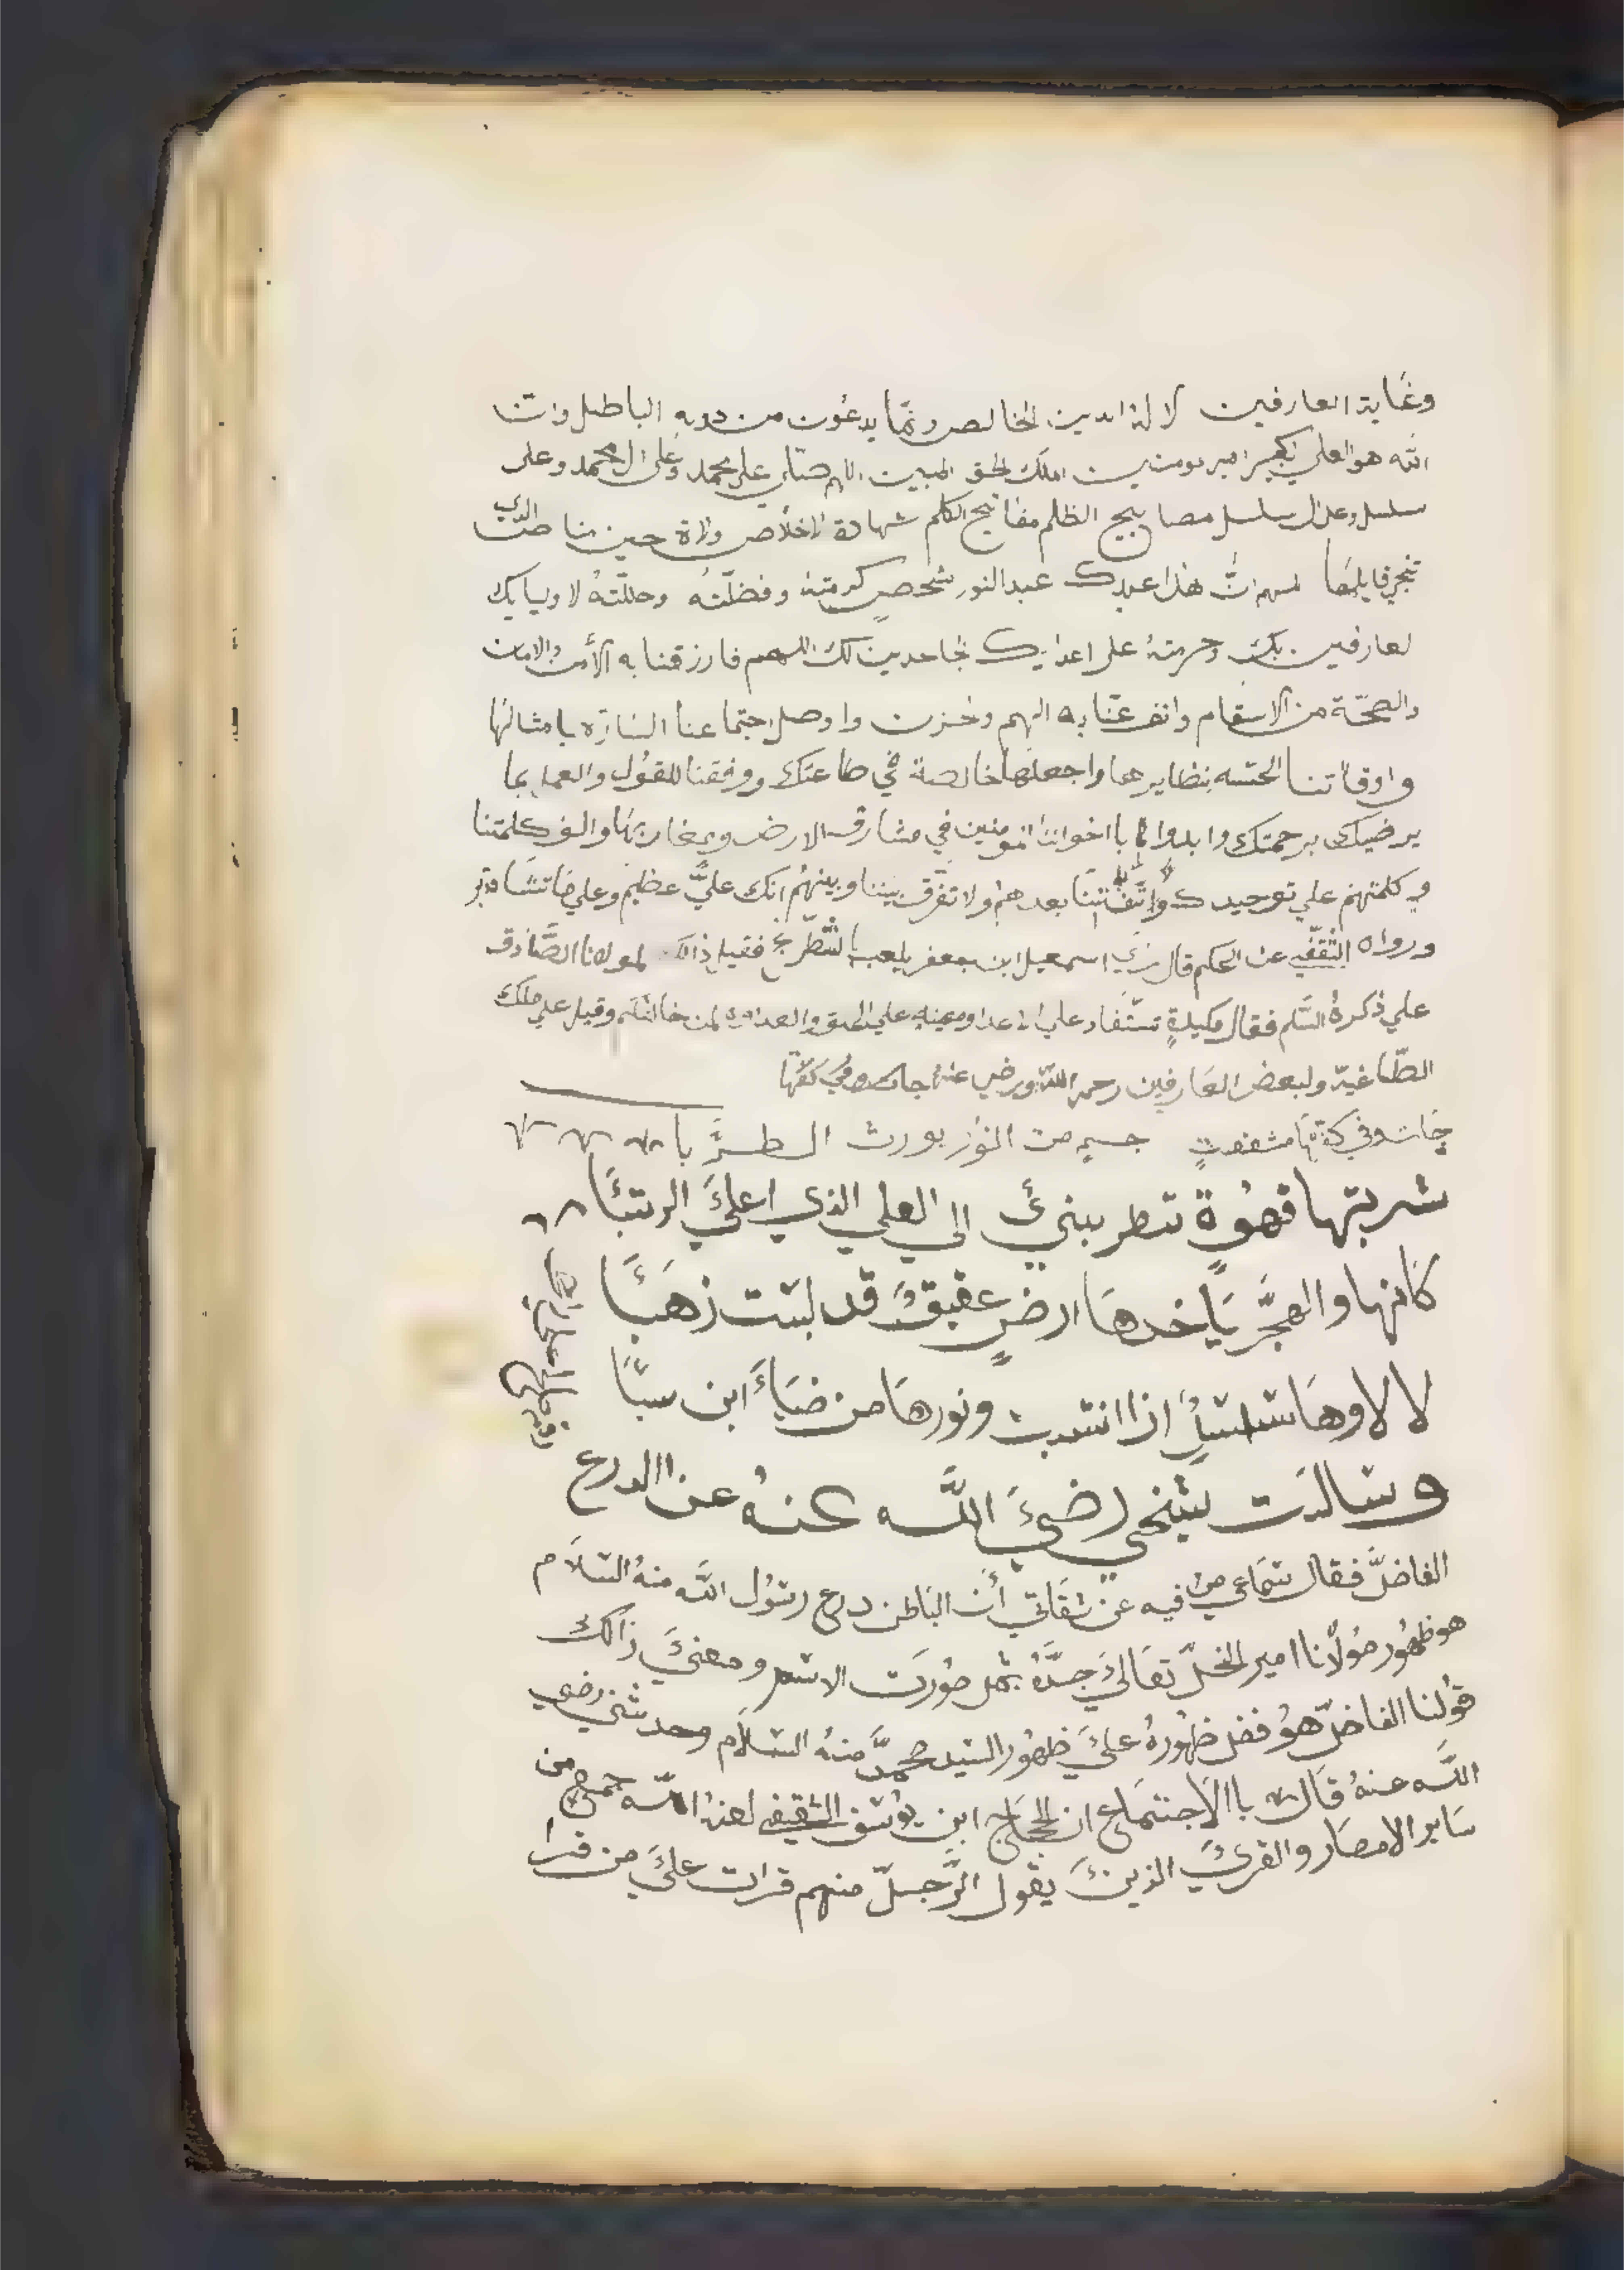 وغاية العارفين الا لله الدين الخالص وما يدعون من دونه الباطل وان
الله هو العلي الكبير امير مومنين الملك الحق المبين اللهم صلي على محمد وعلى ال محمد وعلى
سلسل وعلى ال سلسل مصابيح الظلم مفاتيح الكلم شهادة الاخلاص ولاة حين مناص الذي
تجري هذا عبدك عبد النور شخص كرمته وفضلته وحللته لاوليايك
لعارفين بك وحرمته على اعدايك لجاحدين لك اللهم فارزقنا به الأمن والامان
والصحّة من الاسقام وانف عنّا به الهم وحزن واوصل اجتماعنا السارّه بامثالها
واوقاتنا الحسنه بنظايرها واجعلها خالصة في طاعتك ووفقنا للقول والعمل بما
يرضيك برحمتك وابدوا بااخواننا المومنين في مشارق الارض ومغاربها والف كلمتنا
وكلمتهم علي توحيدك ولا تفتنّا بعدهم ولا تفرّق بيننا وبينهم انك عليّ عظيم وعلي ما تشا قدير
ورواه الثقفي عن الحكم قال اسمعيل ابن جعفر يلعب بالشطرنج فقيل ذالك لمولانا الصّادق
علي ذكرهُ السّلم فقال مكيدةٍ تستفاد علي الاعدا ومعينه علي الحق والعداوه لمن خالفكم وقيل علي ملك
الطّاغية ولبعض العارفين رحمه الله ورضي عنهُ جات وفي كفّها
جات وفي كفّها مشعشعتٍ جسمٍ من النور يورث الطرّبا
شربتها قهوةٍ تطر ببني الى العلي الذي اعلى الرتبًا
كانها والهجّر ياخدها ارضٍ عقيقٍ قد لبست ذهبًا
لالا لاوها سلسلُ اذا انتسبت ونورها من ضياء ابن سبًا
وسالت شيخي رضي الله عنهُ عن الدرع
الفاضلّ فقال سماعي من فيه عن ثقاتي أن الباطن درع رسول الله منهُ السلام
هو ظهور مولانا امير النحلّ تعالى جدّهُ بمثل صورت الاسم ومعنى ذالك
قولنا الفاضلّ هو فضل ظهورهُ على ظهور السيد محمدّ منهُ السلام وحدثني شيخي رضي
الله عنهُ قال باالاجتماع ان الحجاج ابن يوسف الثقيفي لعنهُ اللّه جمع من
ساير الامصار والقرى الذين يقول الرّجلّ منهم قرات على من قرا